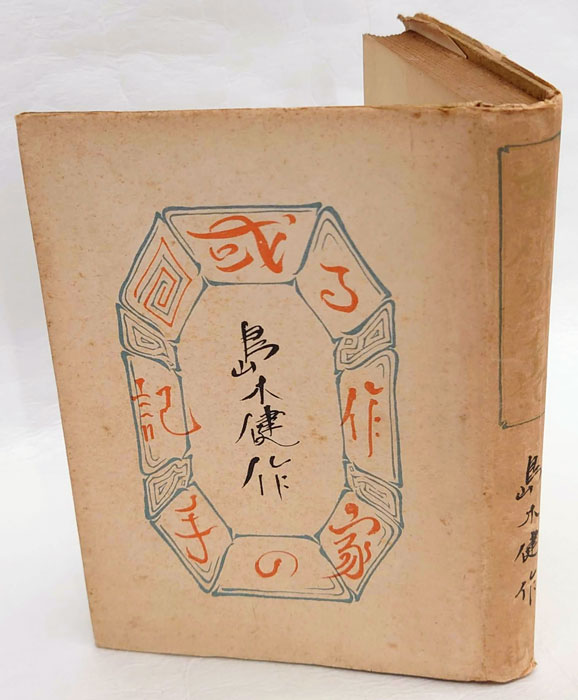 或る作家の手記
島木健作
島木健作